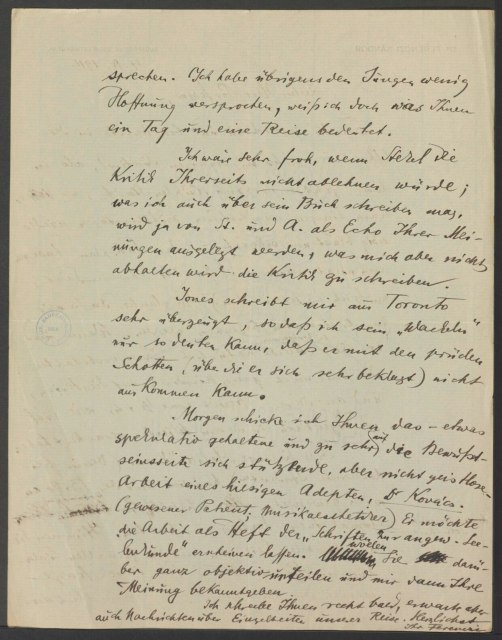 sprechen. Ich habe übrigens den Jungen wenig
Hoffnung versprochen, weiß ich doch was Ihnen
ein Tag und eine Reise bedeutet.
Ich wäre sehr froh, wenn Stekel die
Kritik Ihrerseits nicht ablehnen würde;
was ich auch über sein Buch schreiben mag,
wird ja von St. und A. als Echo Ihrer Mei-
nungen ausgelegt werden, was mich aber nicht
abhalten wird die Kritik zu schreiben.
Jones schreibt mir aus Toronto
sehr überzeugt, sodaß ich sein „Wackeln"
nur so deuten kann, daß er mit den prüden
Schotten, über die er sich sehr beklagt) nicht
auskommen kann.
Morgen schicke ich Ihnen das – etwas
spekulativ gehaltene und zu sehr auf die Bewußt-
seinsseite sich stützende, aber nicht geistlose –
Arbeit eines hiesigen Adepten, Dr Kovács.
(gewesener Patient, Musikaesthetiker) Er möchte
die Arbeit als Heft der „Schriften zur angew. See-
lenkunde" erscheinen lassen. wollen Sie darü-
ber ganz objektiv urteilen und mir dann Ihre
Meinung bekanntgeben.
Ich schreibe Ihnen recht bald, erwarte aber
auch Nachrichten über Einzelheiten unserer Reise. Herzlichst
Ihr Ferenczi